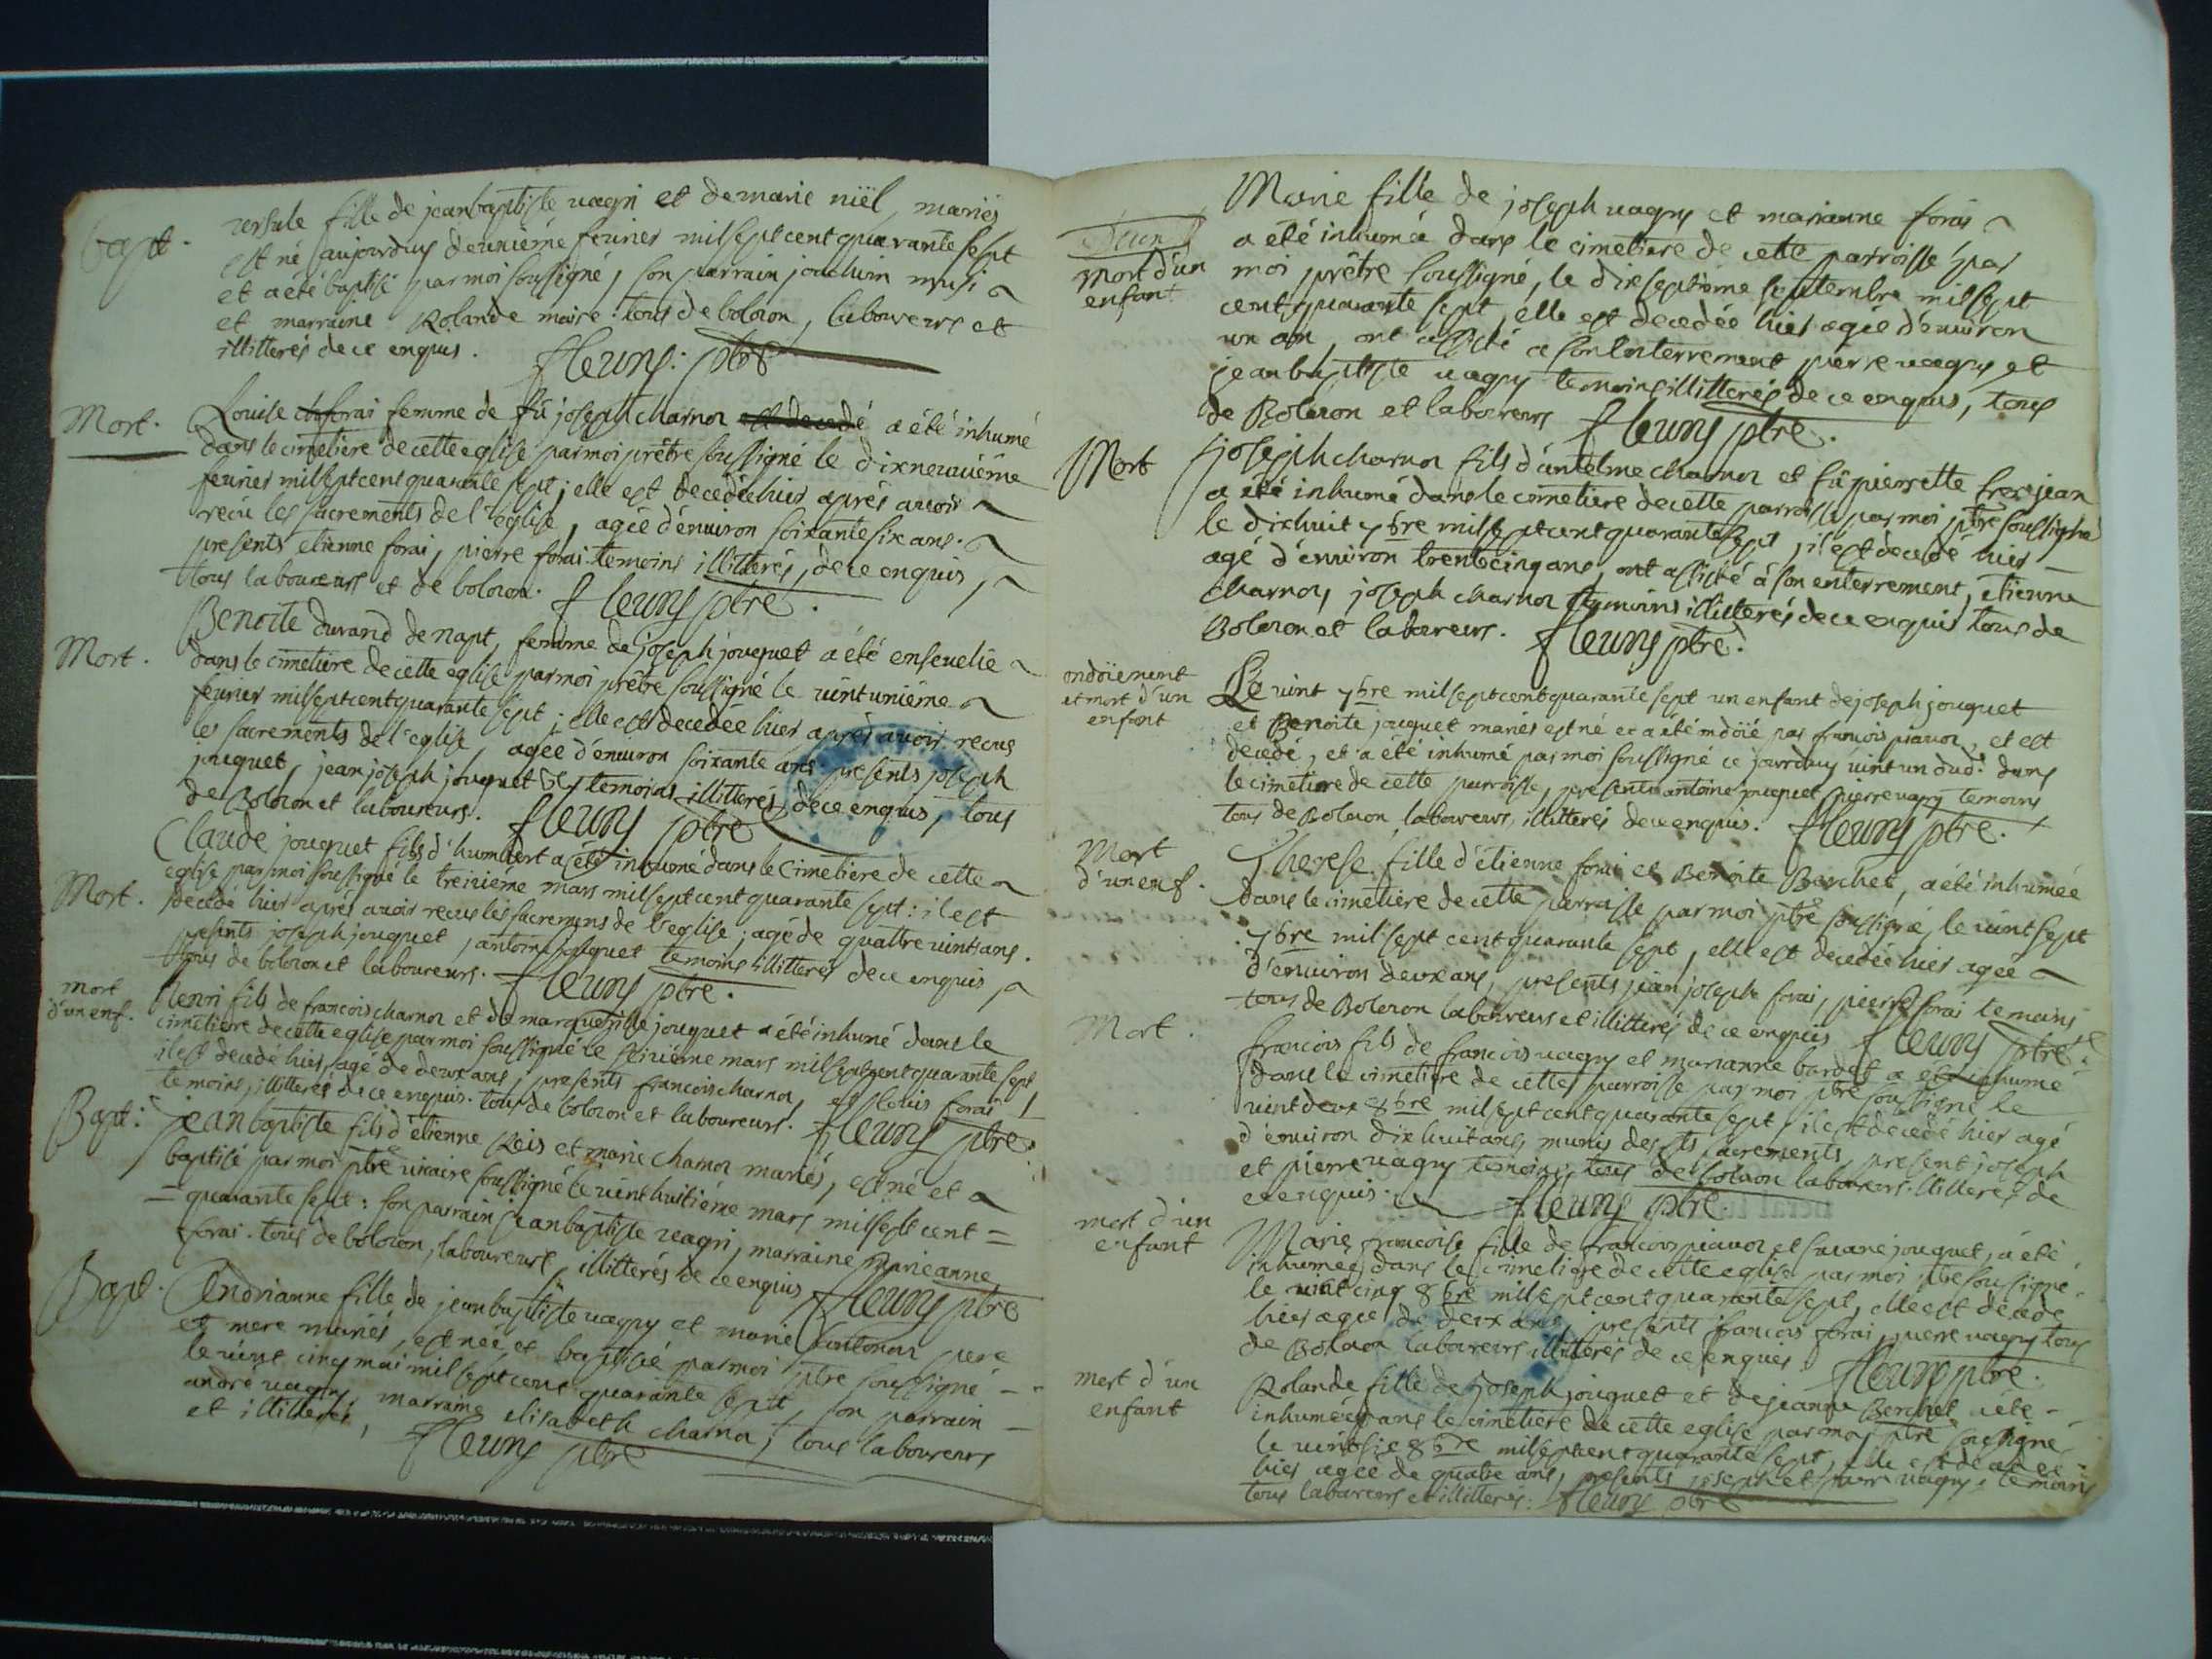 Bapt. ursule fille de jeanbaptiste vagri et de marie niël, mariés
est né aujourduy deuxiéme feurier milseptcentquarante sept
et a été baptisé par moi soussigné, son parrain joachim
et marraine Rolande maire: tous de boloson, laboureurs et
illitterés de ce enquis. fleury: ptre
Mort. Louise forai femme de fû joseph charnor est decedé a été inhumé
dans le cimetiere de cette eglise par moi prêtre soussigné le dixneuuiéme
feurier milseptcentquarante sept; elle est decedée hier aprés auoir
reçu les sacrements de l'eglise, agée d'enuiron soixante six ans.
presents etienne forai, pierre forai temoins illitterés, de ce enquis,
tous laboureurs et de boloson. fleury ptre.
Mort. Benoite durand de napt, femme de joseph jouguet a été enseuelie
dans le cimetiere de cette eglise par moi prêtre soussigné le vintuniéme
feurier milseptcentquarante sept; elle est decedée hier aprés auoir reçus
les sacrements de l'eglise, agée d'enuiron soixante ans. presents joseph
jouguet, jean joseph jouguet temoins illitterés de ce enquis, tous
de Boloson et laboureurs. fleury ptre
Claude jouguet fils d'humbert a été inhumé dans le Cimetiere de cette
eglise par moi soussigné le treiziéme mars milseptcent quarante sept: il est
Mort. decedé hier aprés auoir reçus les sacremens de l'eglise; agé de quattre vint ans.
presents joseph jouguet, antoine jouguet temoins illitterés de ce enquis
tous de boloson et laboureurs. fleury ptre.
mort
d'un enf. Henri fils de francois charnor et de margueritte jouguet a été inhumé dans le
cimetiere de cette eglise par moi soussigné le seiziéme mars milseptcentquarante sept
il est decedé hier, agé de deux ans, presents francois charnor, et louis forai
temoins, illitterés de ce enquis. tous de boloson et laboureurs. fleury ptre.
Bapt: jean baptiste fils d'etienne Reis et marie charnor mariés, est né et
baptisé par moi ptre vicaire soussigné le vinthuitiéme mars milsept cent =
= quarante sept: son parrain jeanbaptiste vagri, marraine marieanne
forai. tous de boloson, laboureurs, illitterés de ce enquis fleury ptre
Bapt. Andrianne fille de jeanbaptiste vagry et marie pere
et mere mariés, est née et baptisé par moi ptre soussigné -
le vint cinq mai milseptcent quarante sept, son parrain -
andré vagry, marraine elisabeth charnor, tous laboureurs
et illitterés, fleury ptre
Marie fille de joseph vagry et marianne forai
a été inhumée dans le cimetiere de cette parroisse par
Mort d'un
enfant moi prêtre soussigné, le dixseptiéme septembre milsept
cent quarante sept, elle est decedée hier agée d'enuiron
un an, ont assisté a son enterrement pierre vagry et
jeanbaptiste vagry temoins illitterés de ce enquis, tous
de Boloson et laboureurs fleury ptre.
Mort joseph charnor fils d'antelme charnor et fû pierrette frerejean
a été inhumé dans le cimetiere de cette parroisse par moi ptre soussigné
le dixhuit 7bre milseptcentquarante sept, il est decedé hier
agé d'enuiron trentecinq ans, ont assisté à son enterrement, etienne
charnor, joseph charnor temoins illitterés de ce enquis tous de
Boloson et laboureurs. fleury ptre.
ondoïement
et mort d'un
enfant Le vint 7bre milseptcentquarante sept un enfant de joseph jouguet
et Benoite jouguet mariés est né et a été ondoïé par francois, et est
decedé, et a été inhumé par moi soussigné ce jourduy vint un dud. dans
le cimetiere de cette parroisse, presents antoine jouguet pierre vagry temoins
tous de Boloson, laboureurs, illitterés de ce enquis. fleury ptre.
Mort
d'un enf. Therese fille d'étienne forai et Benoite Berchet, a été inhumée
dans le cimetiere de cette parroisse par moi ptre soussigné, le vint sept
7bre milsept cent quarante sept, elle est decedée hier agée
d'enuiron deux ans, presents jean joseph forai, pierre forai temoins
tous de Boloson laboureurs et illitterés de ce enquis fleury ptre.
Mort. francois fils de francois vagry et marianne bardet a été inhumé
dans le cimetiere de cette parroisse par moi ptre soussigné le
vint deux 8bre milsept cent quarante sept, il est decedé hier agé
d'enuiron dix huit ans, munis des sts sacrements, present joseph
et pierre vagry temoins, tous de boloson laboureurs. illiterez de
ce enquis. fleury ptre.
mort d'un
enfant Marie francoise fille de francois et jouguet, a été
inhumée dans le cimetiere de cette eglise par moi ptre soussigné
le vint cinq 8bre milseptcentquarante sept, elle est décédé
hier agée de deux ans, presents francois forai, pierre vagry tous
de Boloson laboureurs illitterés de ce enquis fleury ptre.
mort d'un
enfant Rolande fille de joseph jouguet et de jeanne Berchet a été -
inhumée dans le cimetiere de cette eglise par moi ptre soussigné
le vintsix 8bre milseptcentquarante sept, elle est decedée
hier agée de quatre ans, presents joseph et pierre vagry. temoins
tous laboureurs et illitterés: fleury ptre